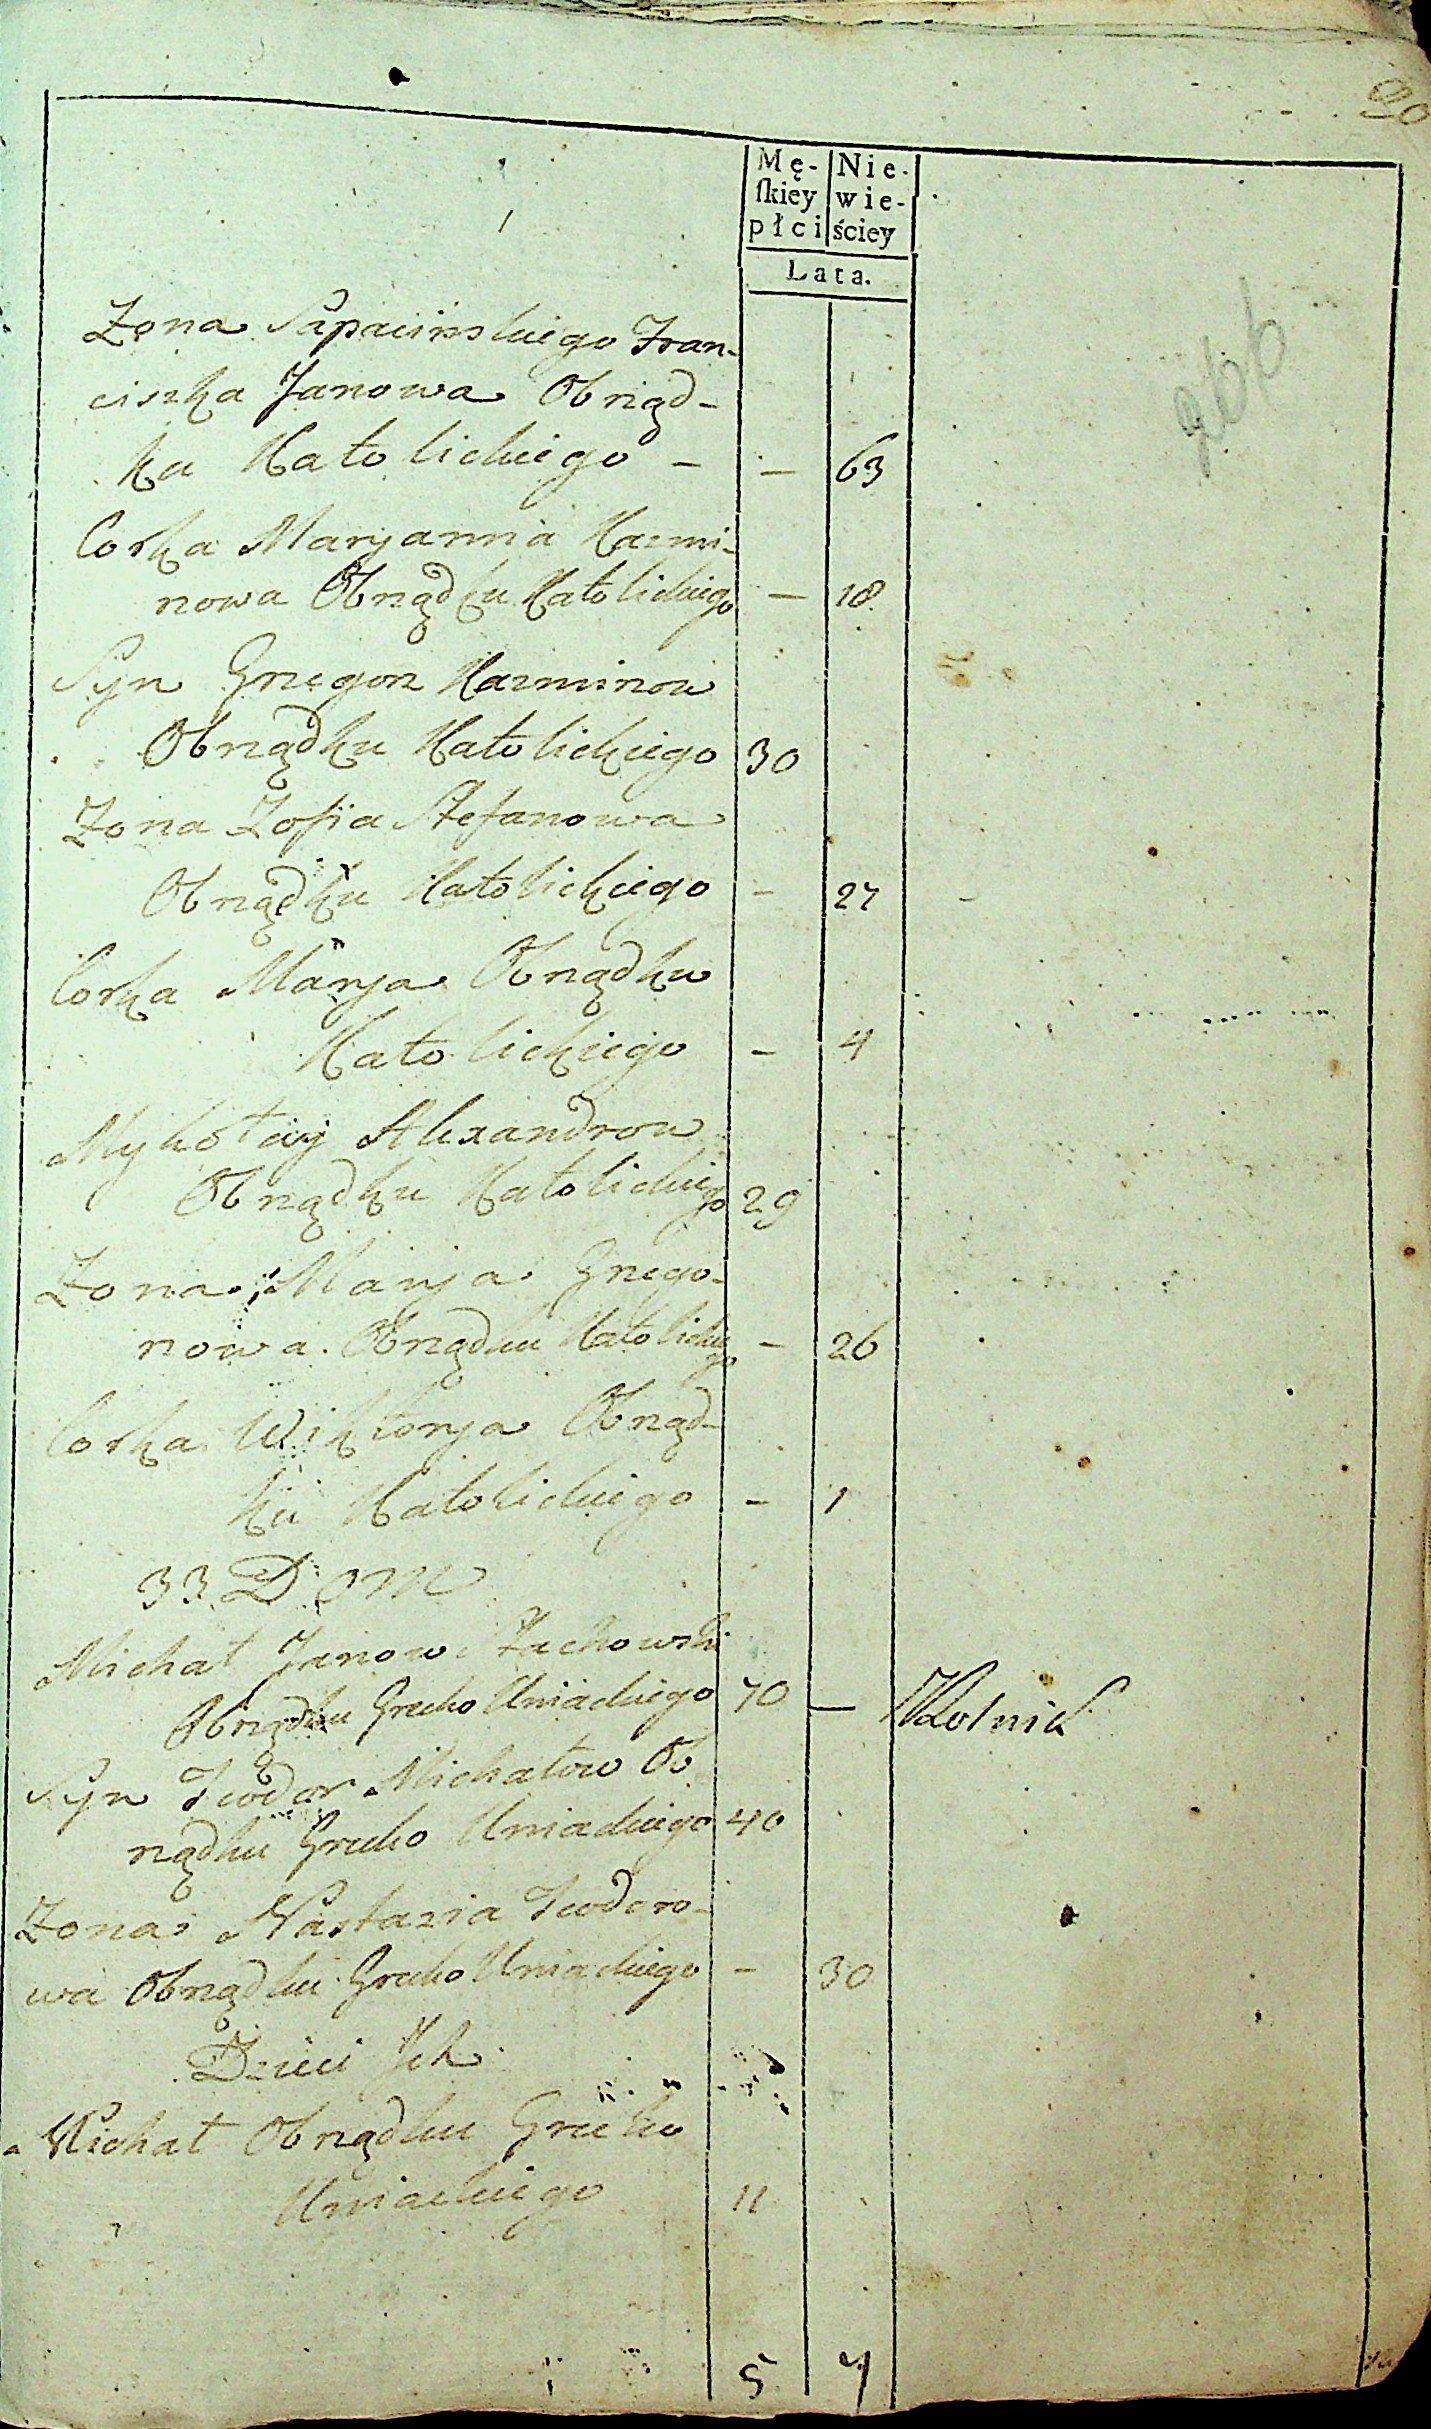 20
Mę- Nie-
skiey wie-
płci ściey
Lata.
266
Zona Sapacinskiego Fran-
ciszka Janowa Obrząd-
ku Katolickiego - - 63
Corka Maryanna Kazmi-
rowa Obrządku Katolickiego - 18
Syn Grzegorz Kazmirow
Obrządku Katolickiego 30
Zona Zofia Stefanowa
Obrządku Katolickiego - 27
Corka Marja Obrządku
Katolickiego - 4
Mykołay Alexandrow
Obrządku Katolickiego 29
Zona Marja Grzego-
rowa Obrządku Katolickiego - 26
Corka Wiktorja Obrząd-
ku Katolickiego - 1
33 Dom
Michał Janow Zachowski
Obrządku Greko Uniackiego 70 — Rolnik
Syn Teodor Michałow Ob
rządku Greko Uniackiego 40
Zona Nastazia Teodoro-
wa Obrządku Greko Uniackiego - 30
Dzieci Ich
Michał Obrządku Greko
Uniackiego 11
5 7